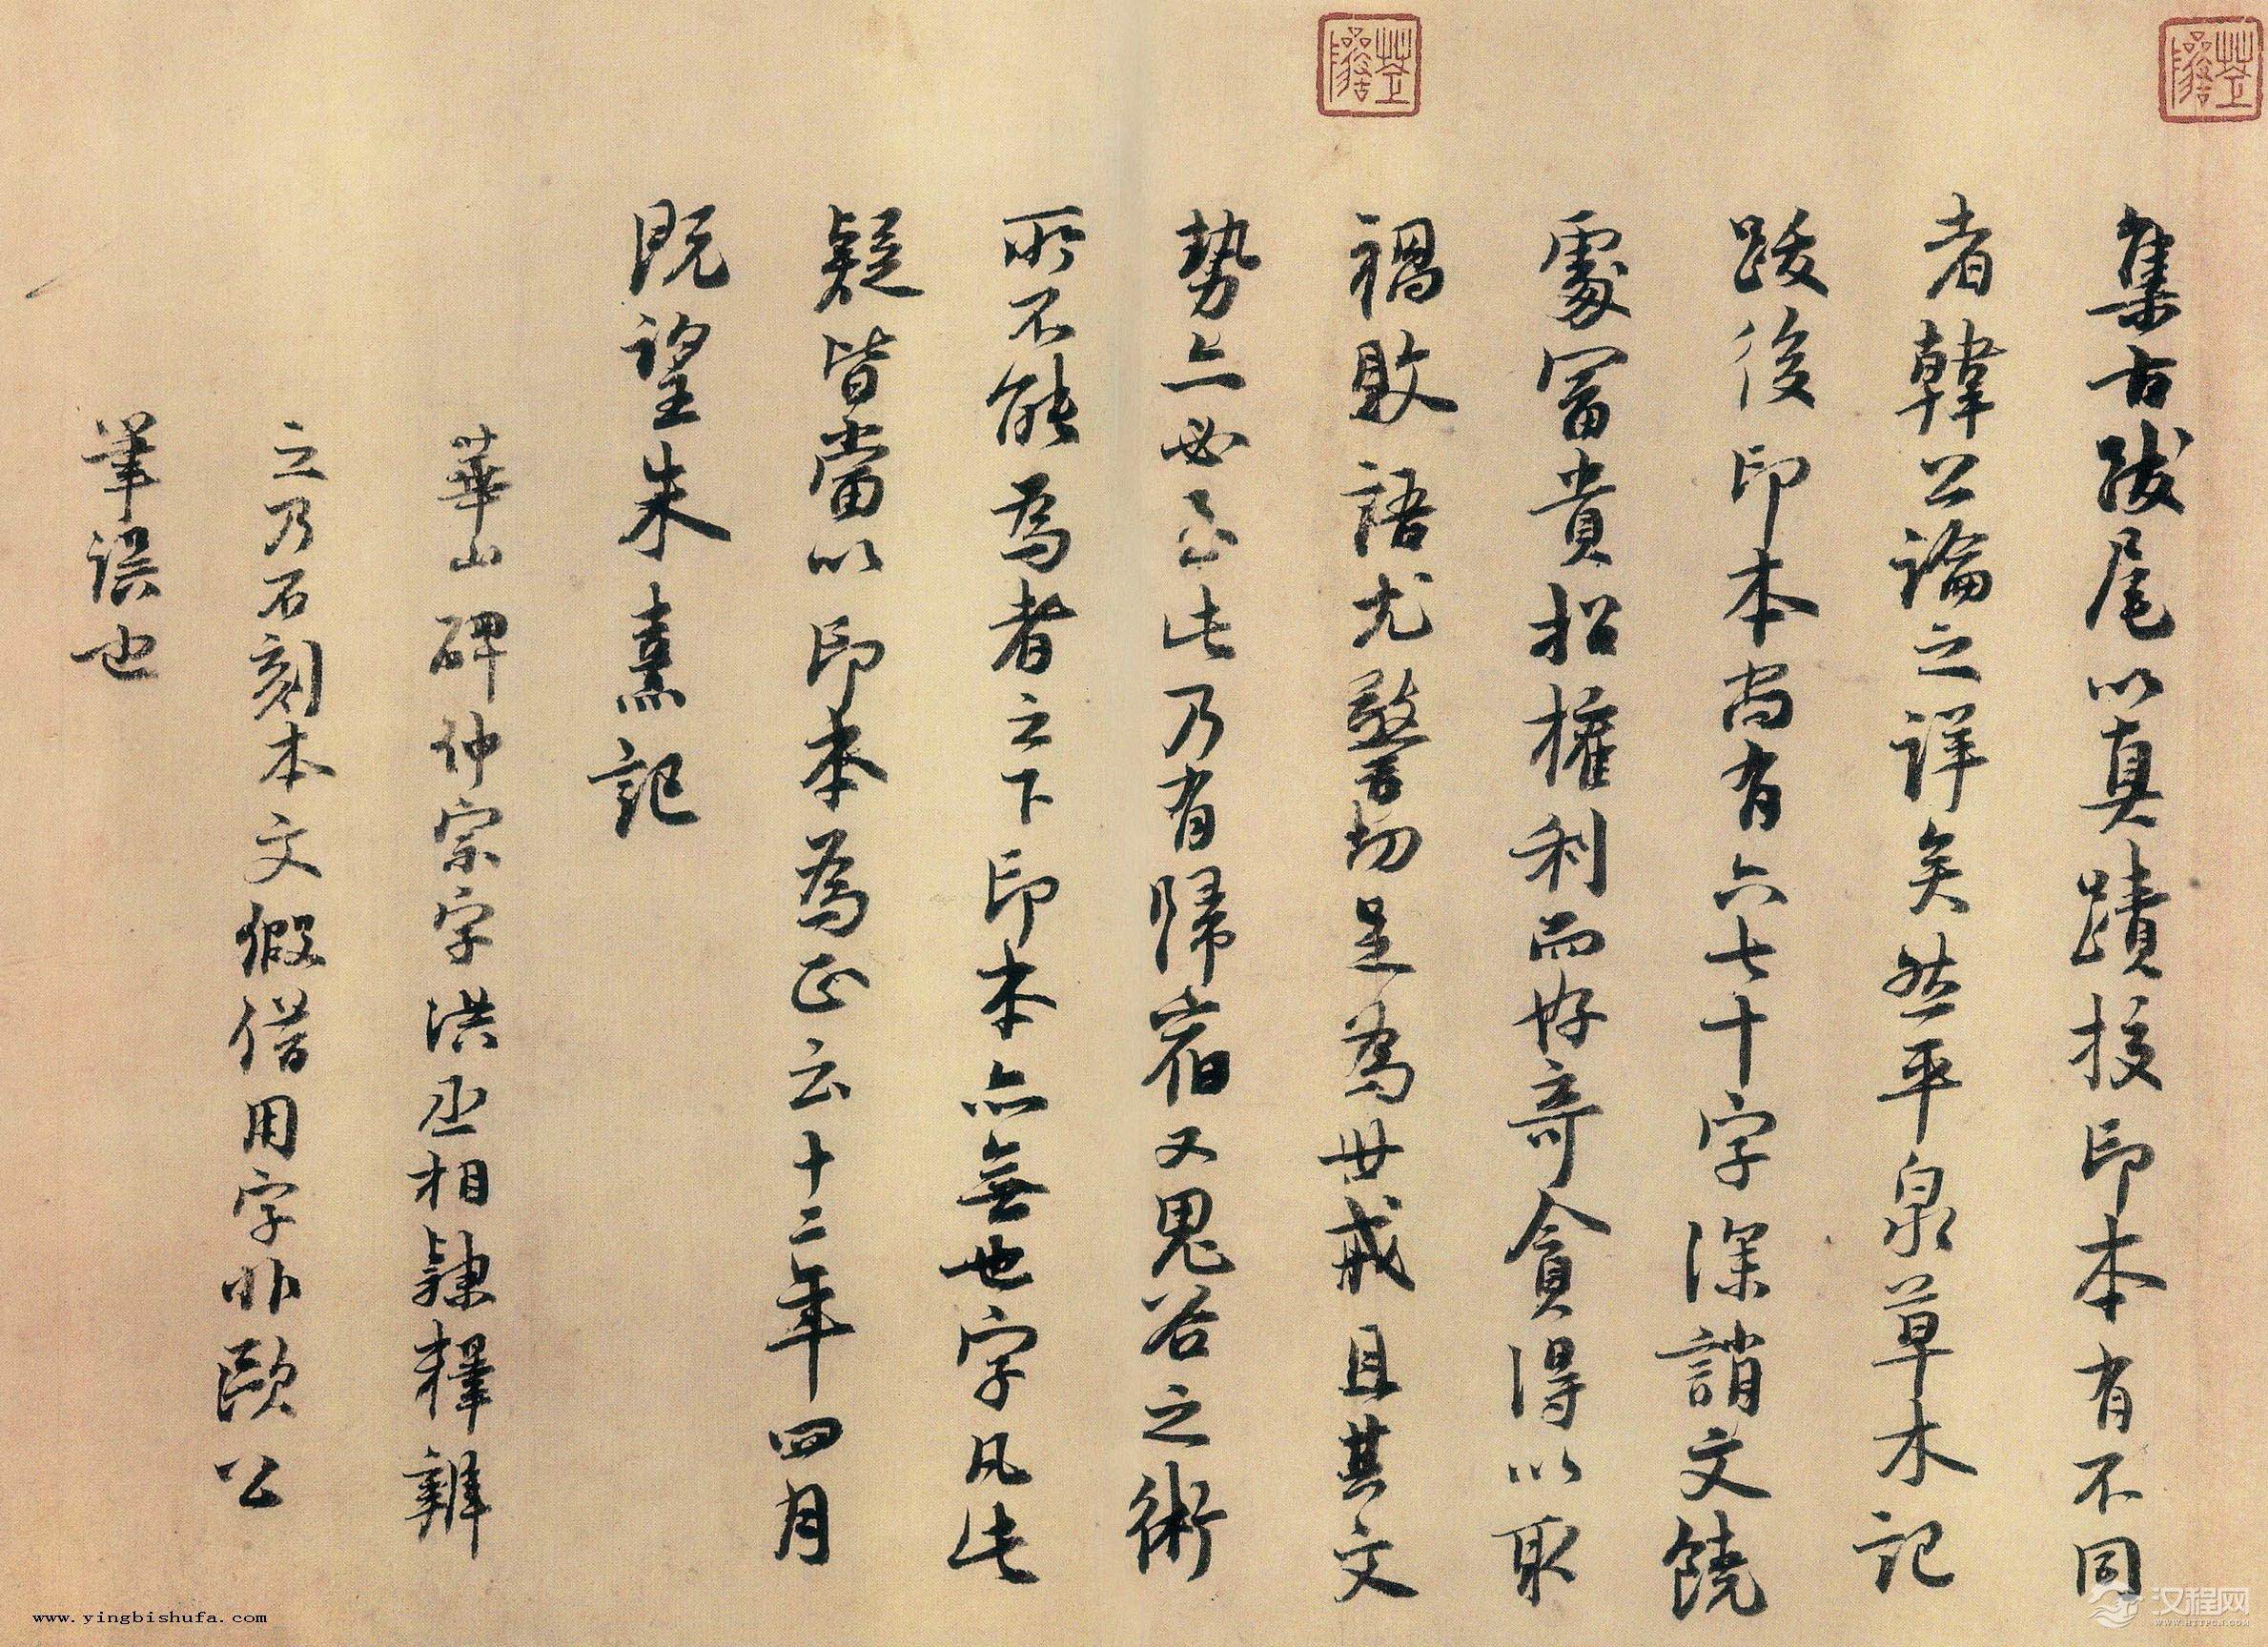 集古跋尾以真蹟挍印本有不同
者韓公論之詳矣然平泉草木記
跋後印本尚有六七十字深誚文饒
處富貴招權利而好奇貪得以取
禍敗語尤警切足為世戒且其文
勢亦必至此乃有歸宿又鬼谷之術
所不能為者之下印本亦無也字凡此
疑皆當以印本為正云十二年四月
既望朱熹記
華山碑仲宗字洪丞相隸釋辨
之乃石刻本文假借用字非歐公
筆誤也
www.yingbishufa.com
汉程网
WWW.HTTPCN.COM